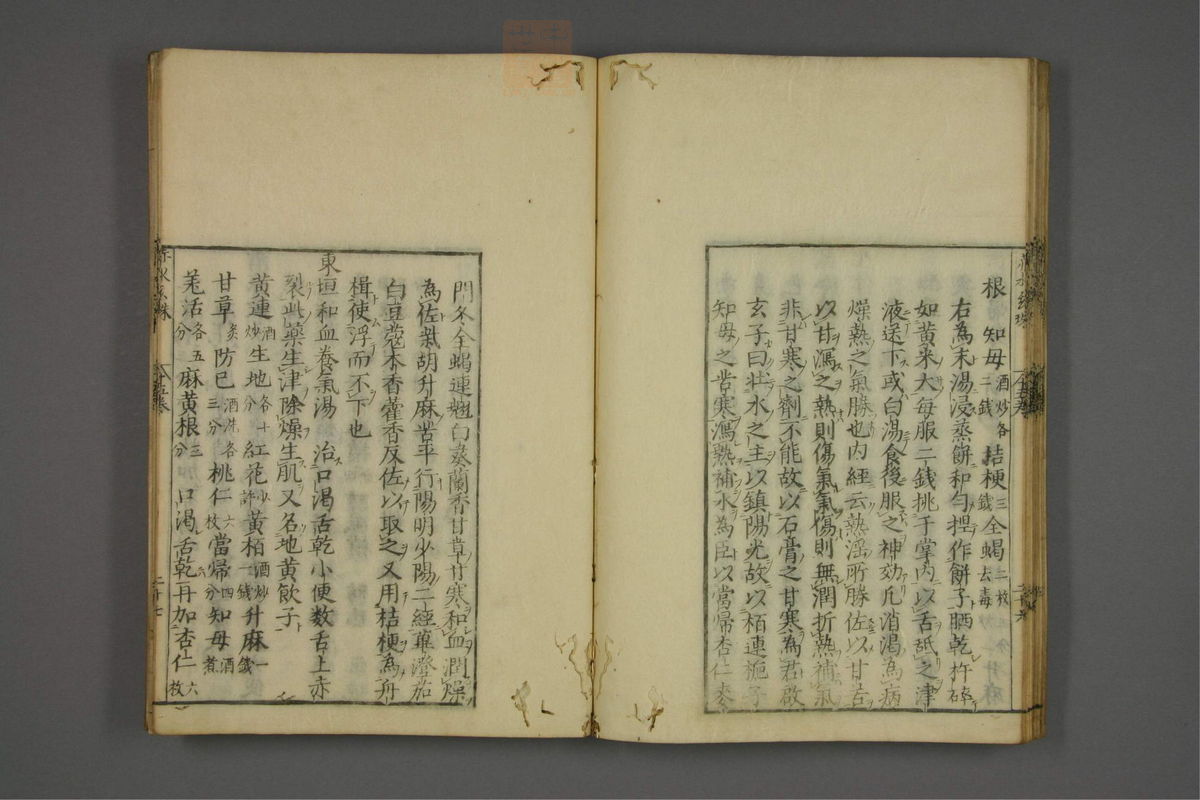 根　知母酒炒各二錢　桔梗三錢　全蝎二枚去毒
右為末湯浸蒸餅和勻捏作餅子晒乾杵碎
如黃米大每服二錢挑于掌內以舌舐之津
液送下或白湯食後服之神効凡消渴為病
燥熱之氣勝也內經云熱淫所勝佐以甘苦
以甘瀉之熱則傷氣氣傷則無潤折熱補氣
非甘寒之劑不能故以石膏之甘寒為君啟
玄子曰壯水之主以鎮陽光故以栢連梔子
知母之苦寒瀉熱補水為臣以當帰杏仁麥
門冬全蝎連翹白葵蘭香甘草甘寒和血潤燥
為佐柴胡升麻苦平行陽明少陽二經蓽澄茄
白豆蔻木香藿香反佐以取之又用桔梗為舟
楫使浮而不下也
東垣和血養氣湯　治口渴舌乾小便数舌上赤
裂此藥生津除燥生肌又名地黃飲子
黃連酒炒生地各十分紅花少許黃栢酒炒一錢升麻一錢
甘草炙防已酒洗各三分桃仁六枚當帰四分知母酒煮
羗活各五分麻黃根三分　口渴舌乾再加杏仁六枚
赤水玄珠
十五卷
二十七